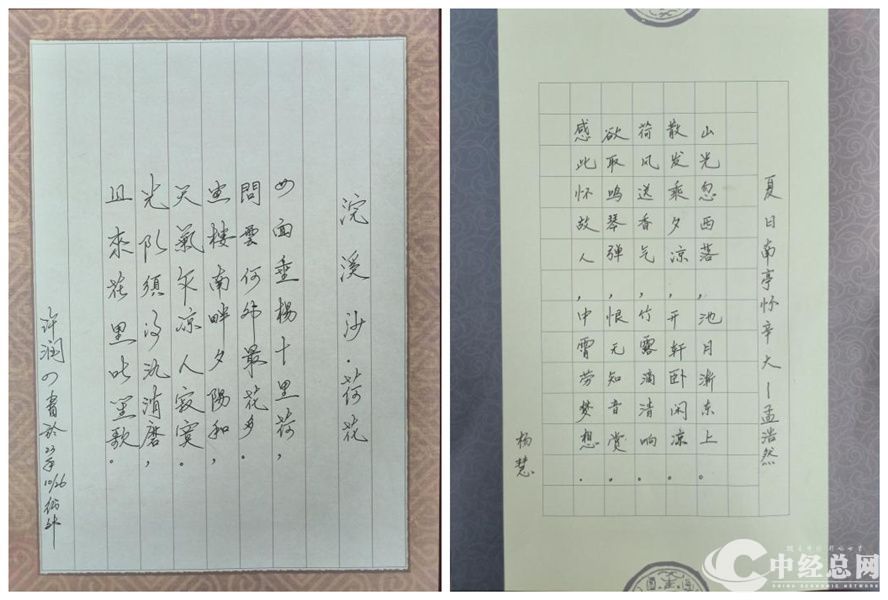 浣溪沙·荷花
四面垂楊十里荷,
問雲何処最花多.
画楼南畔夕陽和,
天氣乍凉人寂寞.
光阴須得沉消磨,
且來花里听笙歌.
许润 書於23年10/26
夏日南亭怀辛大—孟浩然
山光忽西落,池月渐东上。
散发乘夕凉,开轩卧闲凉.
荷风送香气,竹露滴清响.
欲取鸣琴弹,恨无知音赏.
感此怀故人,中霄劳梦想.
杨慧
中经总网
CHINA ECONOMIC NETWORK